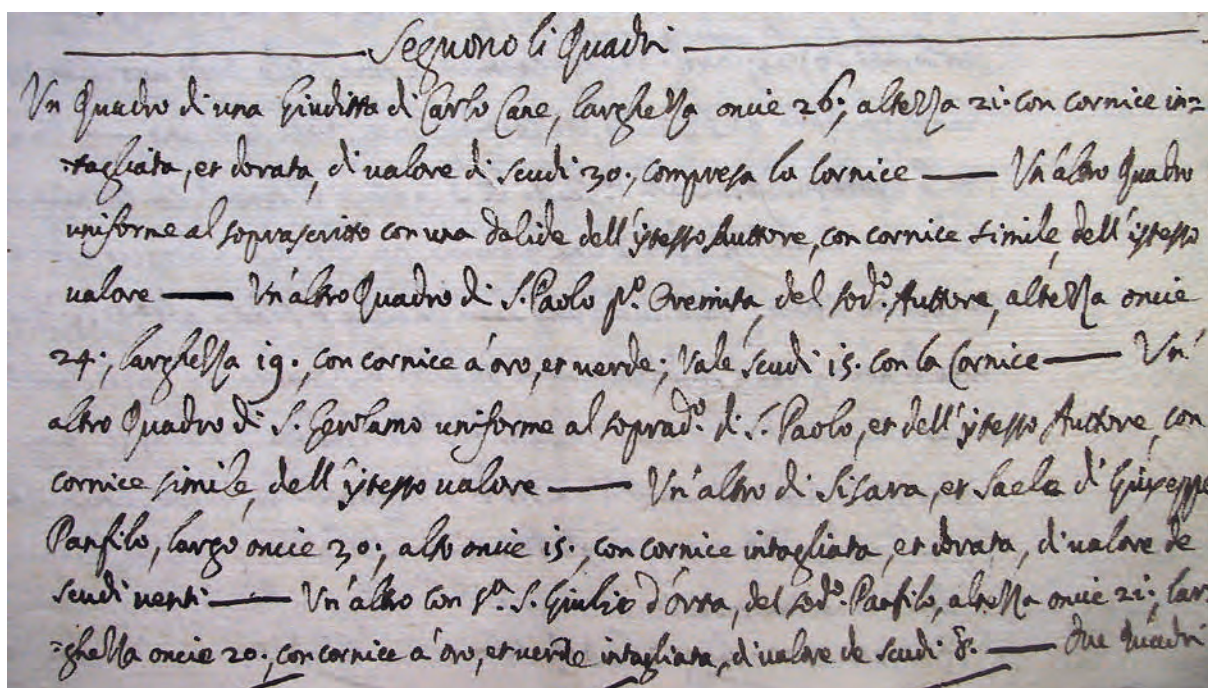 Seguono li Quadri
Un Quadro di una Giuditta di Carlo Cane, larghezza oncie 26; altezza 21. con cornice in=
=tagliata, et dorata, di valore di scudi 30., compresa la Cornice — Un'altro Quadro
uniforme al soprascritto con una Dalide dell'istesso Auttore, con cornice simile, dell'istesso
valore — Un'altro Quadro di S. Paolo p.º Eremita, del sod.º Auttore, altezza oncie
24; larghezza 19., con cornice à oro, et verde; Vale scudi 15. con la Cornice — Un'
altro Quadro di S. Gerolamo uniforme al soprad.º di S. Paolo, et dell'istesso Auttore, con
cornice simile, dell'istesso valore — Un'altro di Sisara, et Iaele di Giuseppe
Panfilo, largo oncie 30; alto oncie 15., con cornice intagliata, et dorata, di valore de
scudi venti — Un'altro con S. Giulio d'Orta, del sod.º Panfilo, altezza oncie 21; lar=
=ghezza oncie 20., con cornice à oro, et verde intagliata, di valore de scudi 8. — Due Quadri